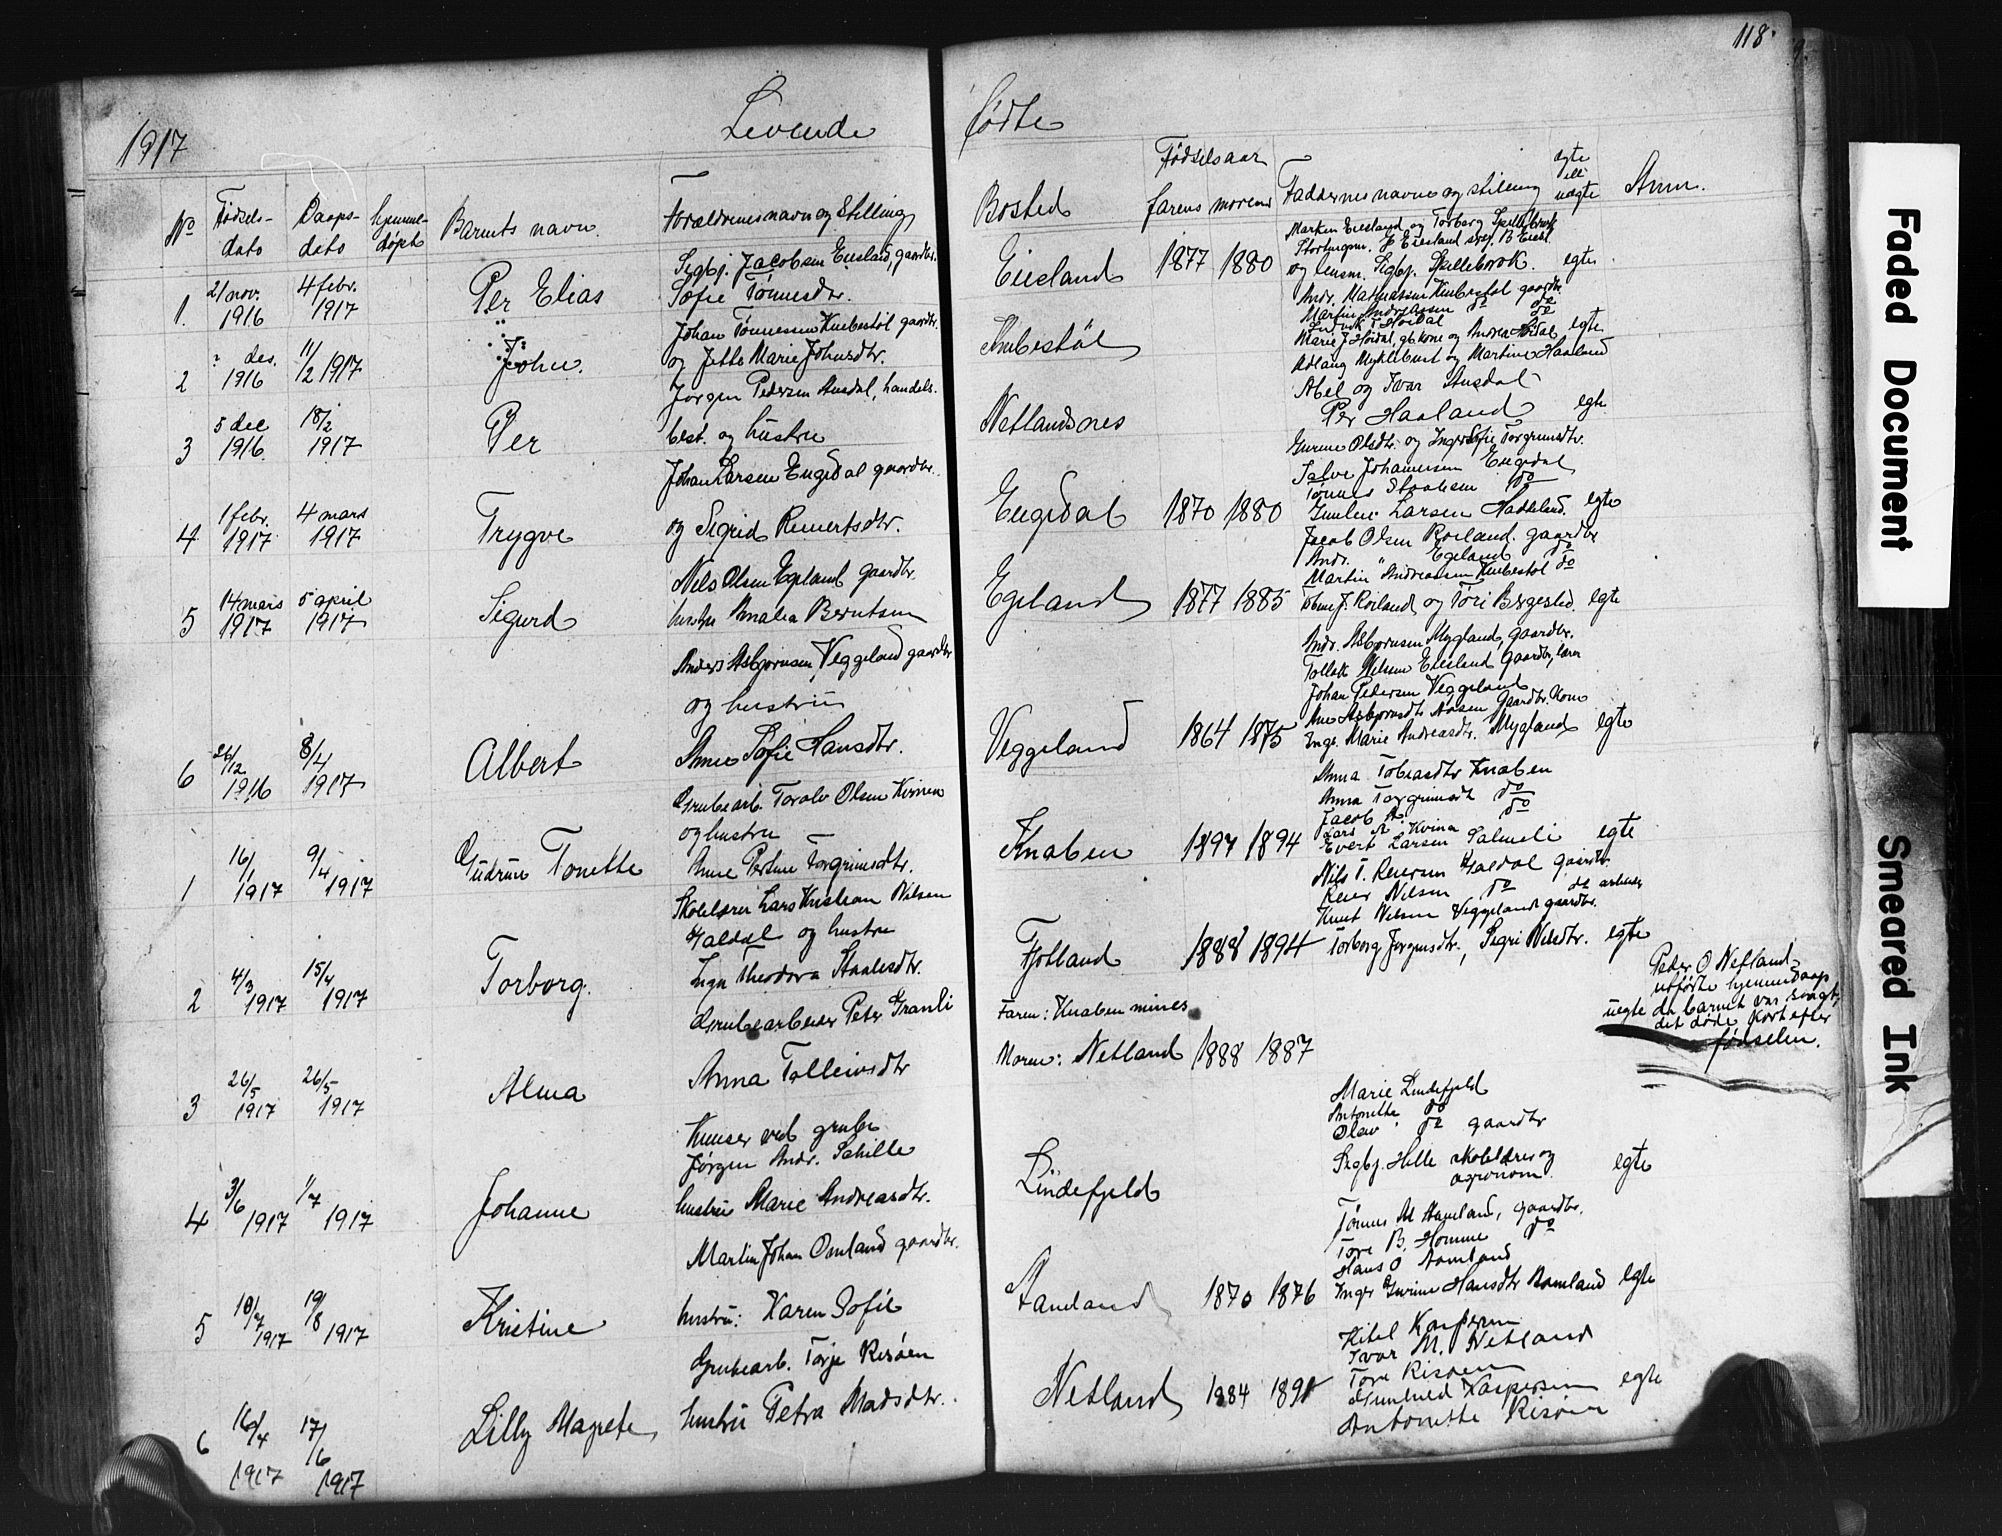 118.
1917
Levende
fødte
No
Fødsels-
dato
Daaps-
dato
hjemme-
døpt
Barnets navn.
Forældrenes navn og Stilling
Bosted
Fødselsaar
farens morens
Faddernes navne og stilling
egte
ell
uegte
Anm.
1.
21 nov.
1916
4 febr.
1917
Per Elias
Sigbj. Jacobsen Eiesland, gaardbr.
Sofie Tønnesdtr.
Eiesland
1877 1880
og lensm. Sigbj. Spilleborok.
egte
2
des.
1916
11/2 1917
John.
Johan Tønnessen Knibestøl gaardbr.
og Jette Marie Johnsdtr.
Knibestøl
Andr. Mathiassen Knibestøl gaardbr.
Martin Andreassen do do
Marie J Høidal, gb. kone og Andrea Høidal
egte
Aslaug Myklebust og Martine Haaland
3
5 dec
1916.
18/2
1917
Per
Jørgen Pedersen Ausdal, handels.
best. og hustru
Netlandsnes
Abel og Ivar Ausdal
Per Haaland
egte
4
1 febr.
1917
4 mars
1917
Trygve
Johan Larsen Eugedal gaardbr.
og Sigrid Reinertsdtr.
Eugedal
1870 1880
Gurine Olsdtr. og Inger Sofie Torgrimsdtr.
Salve Johannesen Eugedal
Tønnes Staalesen do
Larsen Hadeland.
egte
5
14 mars
1917
5 april
1917
Sigurd
Nils Olsen Egeland gaardbr.
hustru Amalia Berntsen
Egeland
1877 1885
Jacob Olsen Roiland. gaardbr
Andr. " Egeland do
Martin Andreassen Knibestøl do
J. Roiland og Tori Bergested.
egte
6
26/12
1916
8/4
1917
Albert
Anders Asbjørnsen Veggeland gaardbr
og hustru
Anne Sofie Hansdtr.
Veggeland
1864 1875
Andr. Asbjørnsen Mygland, gaardbr.
Tollak Nilsen Eiesland gaardbr, lærer
Johan Pedersen Veggeland
Ane Asbjørnsdtr Aasen gaardbr. kone
Inge. Marie Andreasdtr. Mygland
egte
1
16/1
1917
9/4
1917
Gudrun Tonette
Grubearb. Toralv Olsen Kvinen
og hustru
Anne Perline Torgrimsdtr.
Knaben
1897 1894
Anna Tobiasdtr Knaben
Anna Torgrimsdt do
Jacob A. do
Lars A. Kvina
Evert Larsen Salmeli
egte
2
4/3
1917
15/4
1917
Torborg.
Skolelærer Lars Kristian Nilsen
Galdal og hustru
Inga Theodora Staalesdtr.
Fjotland
1888 1894
Nils T. Reiersen Galdal gaardbr.
Reier Nilsen do do arbeider
Knut Nilsen Veggeland gaardbr.
Torborg Jørgensdtr., Sigri Nilsdtr.
egte
3
26/5
1917
26/5
1917
Alma
Grubearbeider Peter Granli
Anna Tolleivsdtr
Faren: Knaben mines
Moren: Netland
1888 1887
uegte
Peder O Netland
utførte hjemmedaap
da barnet var svagt,
det døde kort efter
fødselen.
4
3/6
1917
1/7
1917
Johanne
Knuser ved gruben
Jørgen Andr. Schille
hustru Marie Andreasdtr.
Lindefjeld
Marie Lindefjeld
Antonette do
Olav do gaardbr
Sigbj. Hille skolelærer og
agronom.
egte
5
18/7
1917
19/8
1917
Kristine
Martin Johan Omland gaardbr.
hustru: Karen Sofie
1870 1876
Tønnes M Aamland, gaardbr.
Tore B. Homme do
Hans O Aamland
Inger Gurine Hansdtr Aamland
egte
6
16/4
1917
17/6
1917
Lilly Magrete
Grubearb. Torje Risøen
hustru Petra Madsdtr.
Netland
1884 1891
Ketil Kaspersen
Ivar M. Netland
Tore Risøen
Gunhild Kaspersen
Antonette Risøen
egte
Faded Document
Smeared Ink